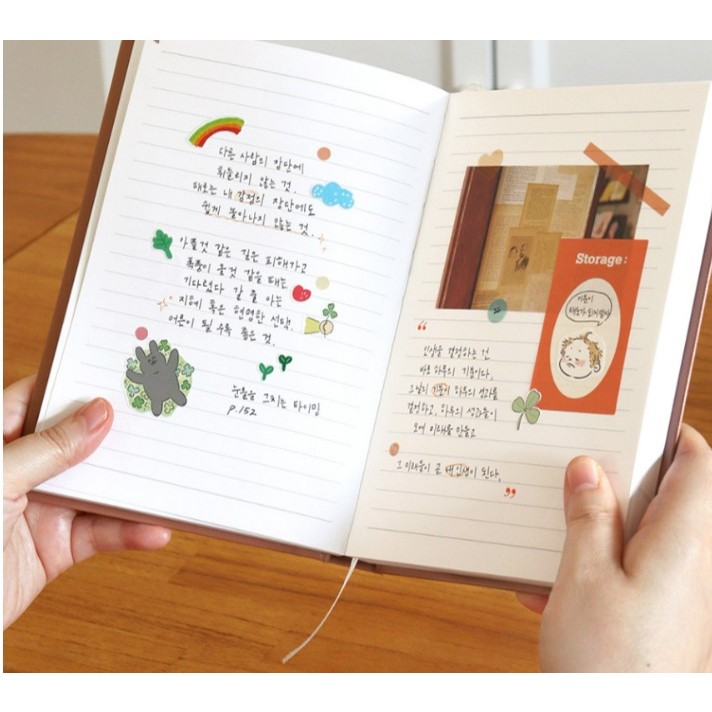 다른 사람의 장단에
휘둘리지 않는 것.
때로는 내 감정의 장단에도
쉽게 놀아나지 않는 것.
아플것 같은 길은 피해가고
폭풍이 올것 같을 때는
기다렸다 갈 줄 아는
지혜 혹은 현명한 선택.
어른이 될 수록 좋은 것.
눈물을 그치는 타이밍
p.152
Storage:
기분이
태도가 되지말자
“
인생을 결정하는 건
바로 하루의 기분이다.
그날의 기분이 하루의 성과를
결정하고, 하루의 성과들이
모여 미래를 만들고
그 미래들이 곧 내 인생이 된다.
”